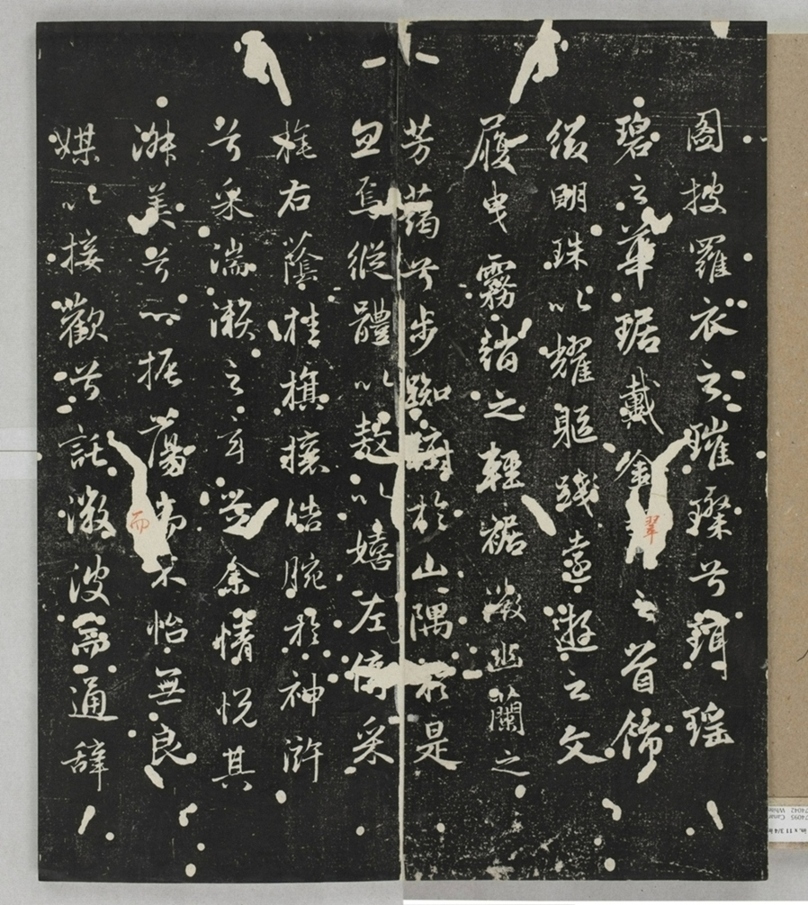 圖披羅衣之璀璨兮珥瑤
碧之華琚戴金翠之首飾
綴明珠以耀軀踐遠遊之文
履曳霧綃之輕裾微幽蘭之
芳藹兮步踟躕於山隅於是
忽焉縱體以遨以嬉左倚采
旄右蔭桂旗攘皓腕於神滸
兮采湍瀨之玄芝余情悅其
淑美兮心振蕩而不怡無良
媒以接歡兮託微波而通辭